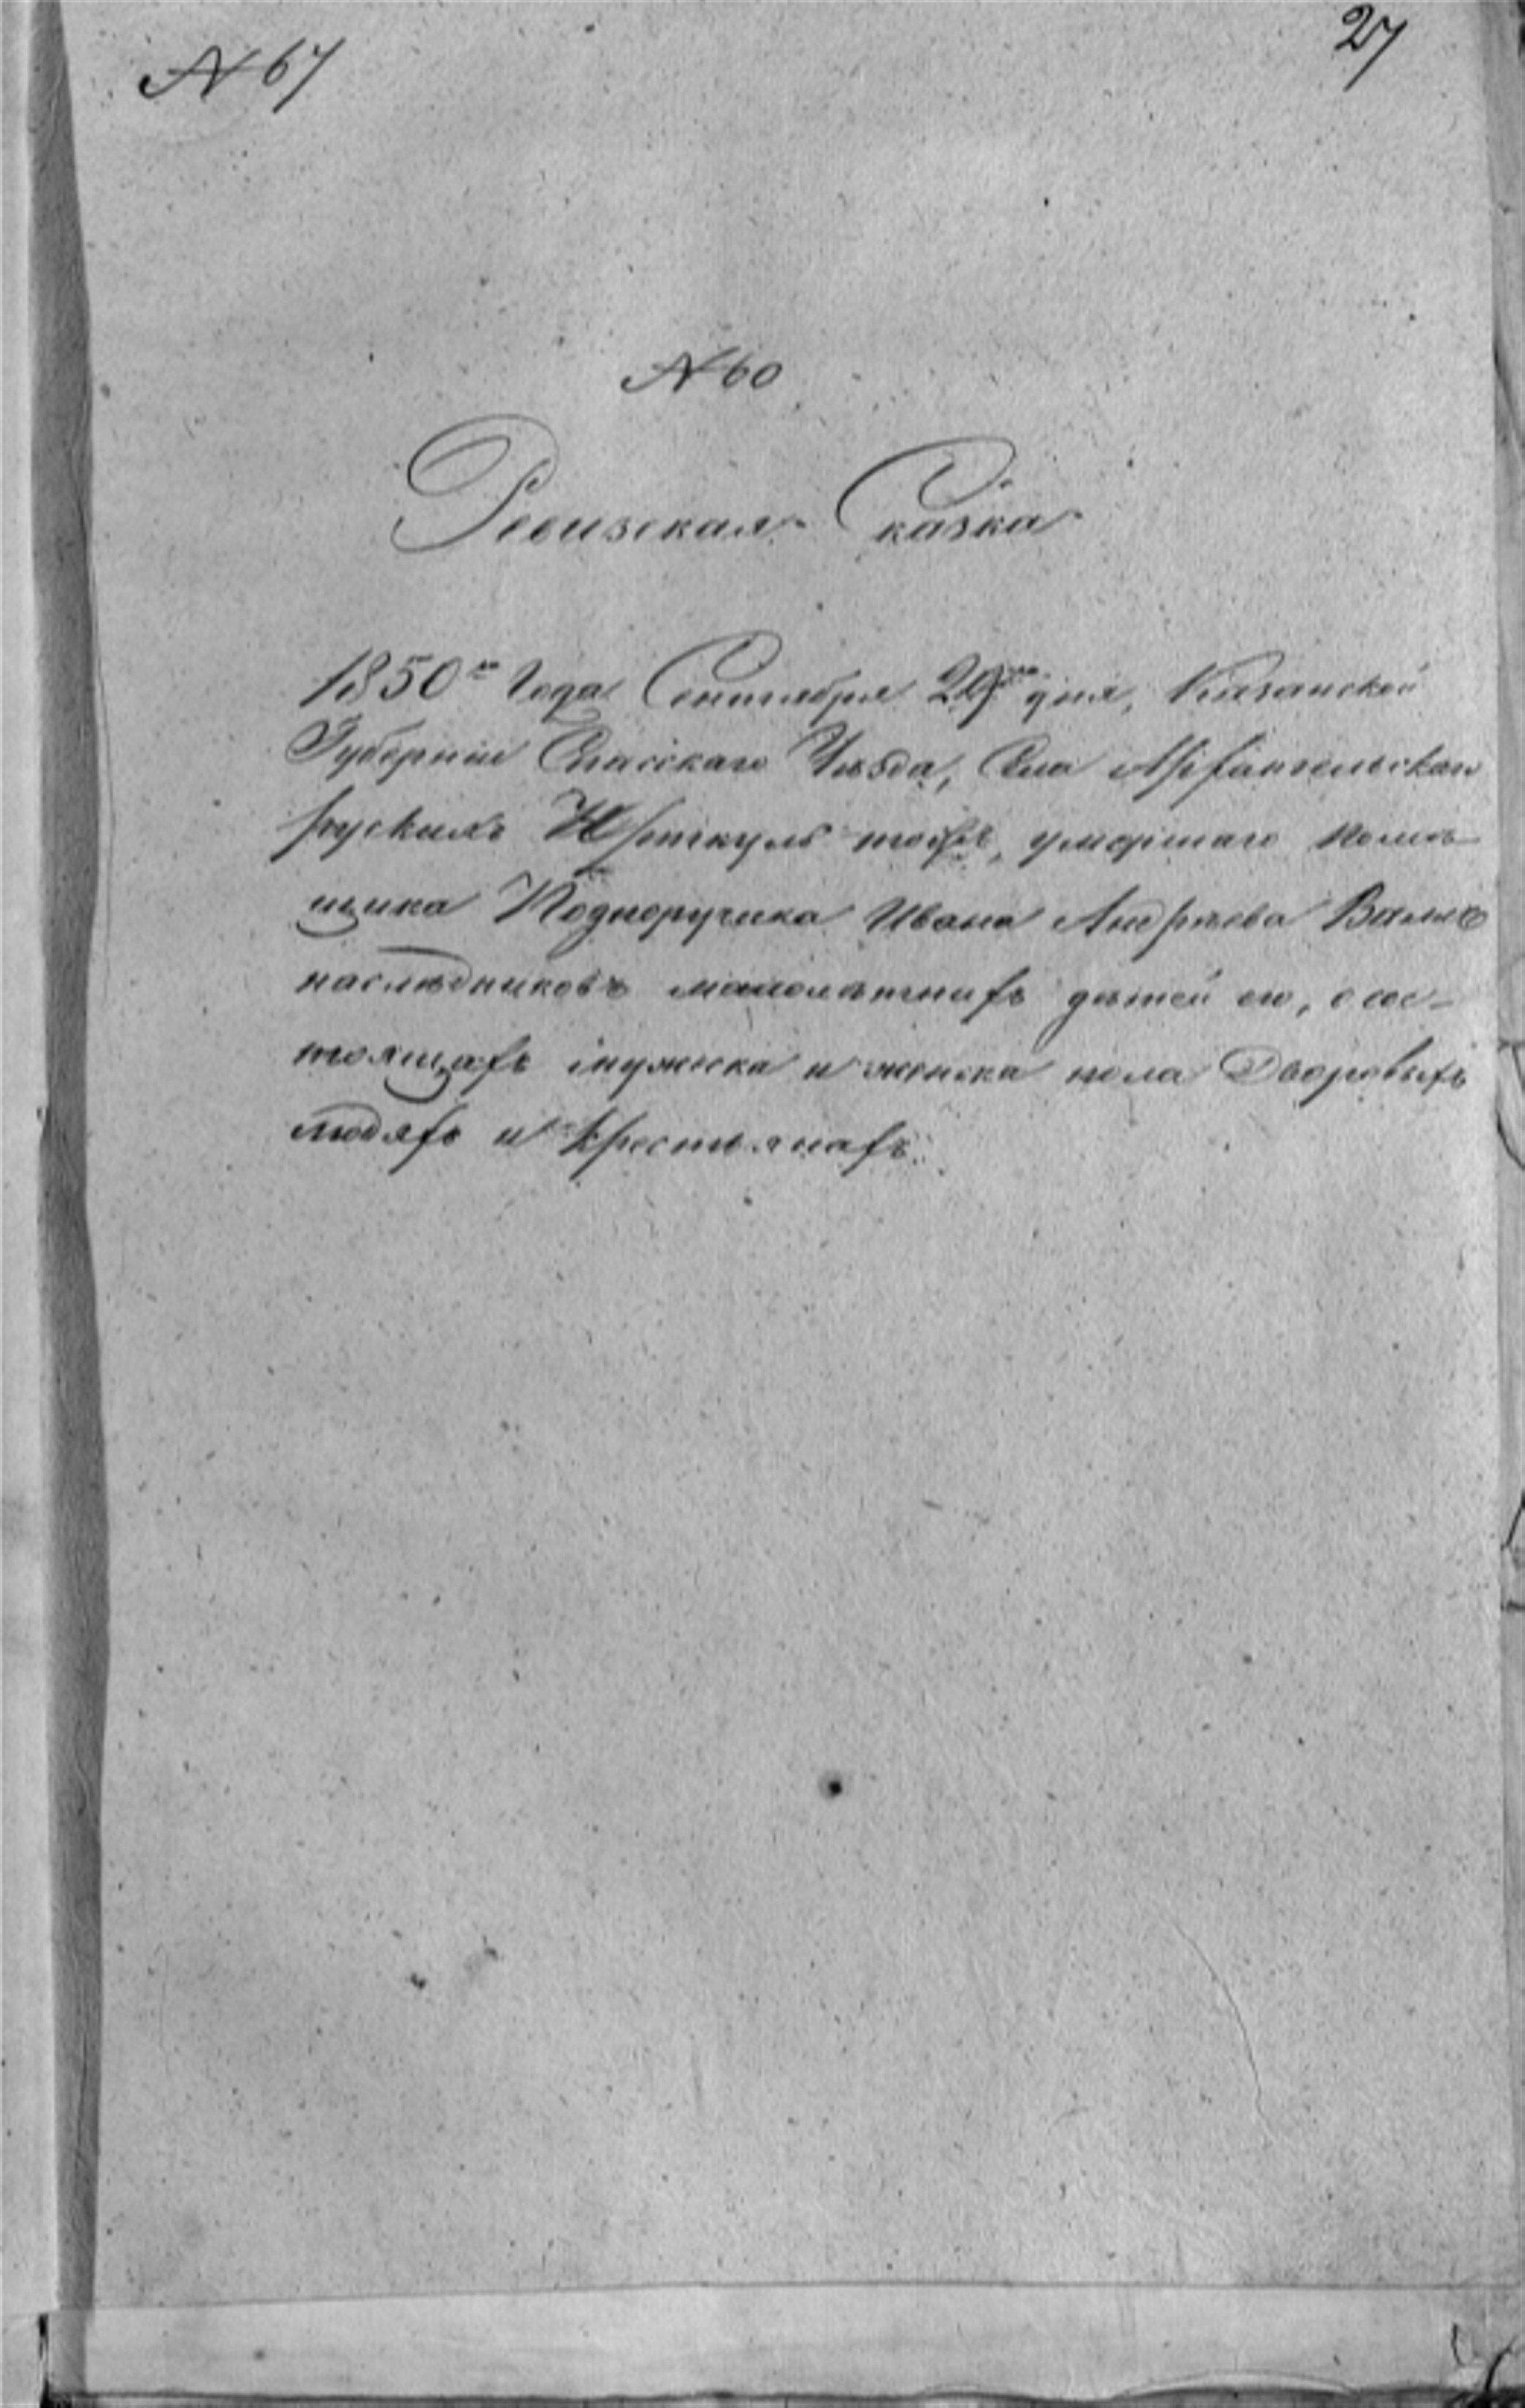 № 67
27
№ 60
Ревизская Сказка
1850го Года Сентября дня, Казанской
Губернии Спасскаго Уѣзда, Села Архангельскаго
рускихъ тожъ, умершаго помѣ-
щика Подпоручика Ивана Андрѣева
наслѣдниковъ малолѣтнихъ дѣтей его, о сос-
тоящихъ мужеска и женска пола Дворовыхъ
людяхъ и крестьянахъ.